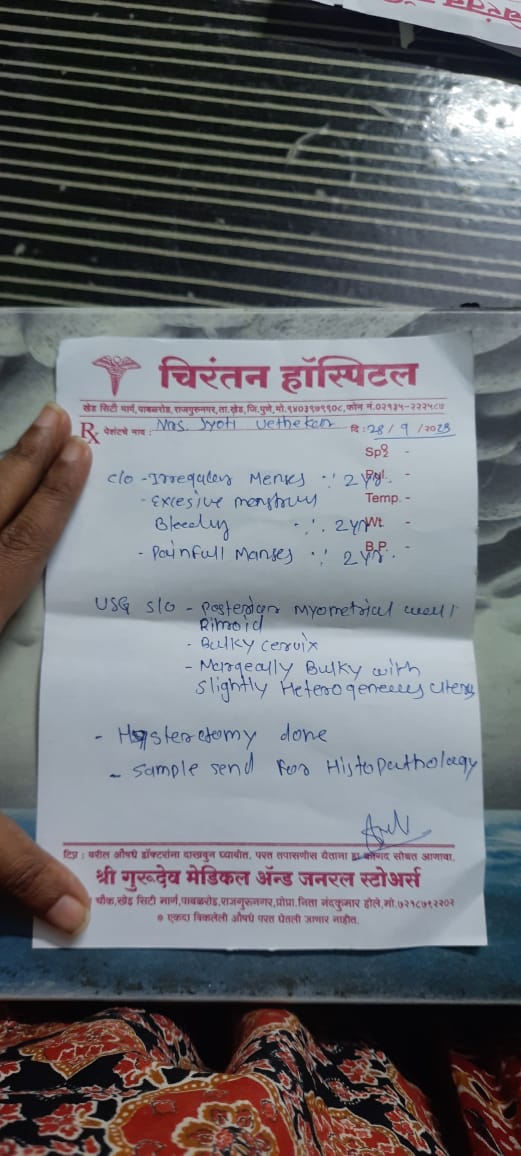 चिरंतन हॉस्पिटल
खेड सिटी मार्ग,पाबळरोड,राजगुरुनगर,ता.खेड,जि.पुणे,मो.९४०३९७९९०८,फोन नं.०२१३५-२२२५८७
Rx पेशंटचे नाव : Mrs. Jyoti Vethekar दि : 28/9/2023
Spo2 -
c/o - Irregular Menses ∵ 2 yr. Pul. -
- Excesive menstruy Temp. -
Bleeding ∵ 2 yr Wt. -
- Painfull Manses ∵ 2 yr. B.P. -
USG S/o - Posterior myometrial wall
- Bulky cervix
- Bulky with
slightly Heterogeneous uterus
- Hysterectomy done
- Sample send For Histopathology
टिप : वरील औषधे डॉक्टरांना दाखवुन घ्यावीत. परत तपासणीस येताना हा कागद सोबत आणावा.
श्री गुरूदेव मेडिकल अँन्ड जनरल स्टोअर्स
चौक,खेड सिटी मार्ग,पाबळरोड,राजगुरुनगर,प्रोप्रा.निता नंदकुमार होले,मो.७२१८७९२२०२
एकदा विकलेली औषधे परत घेतली जाणार नाहीत.